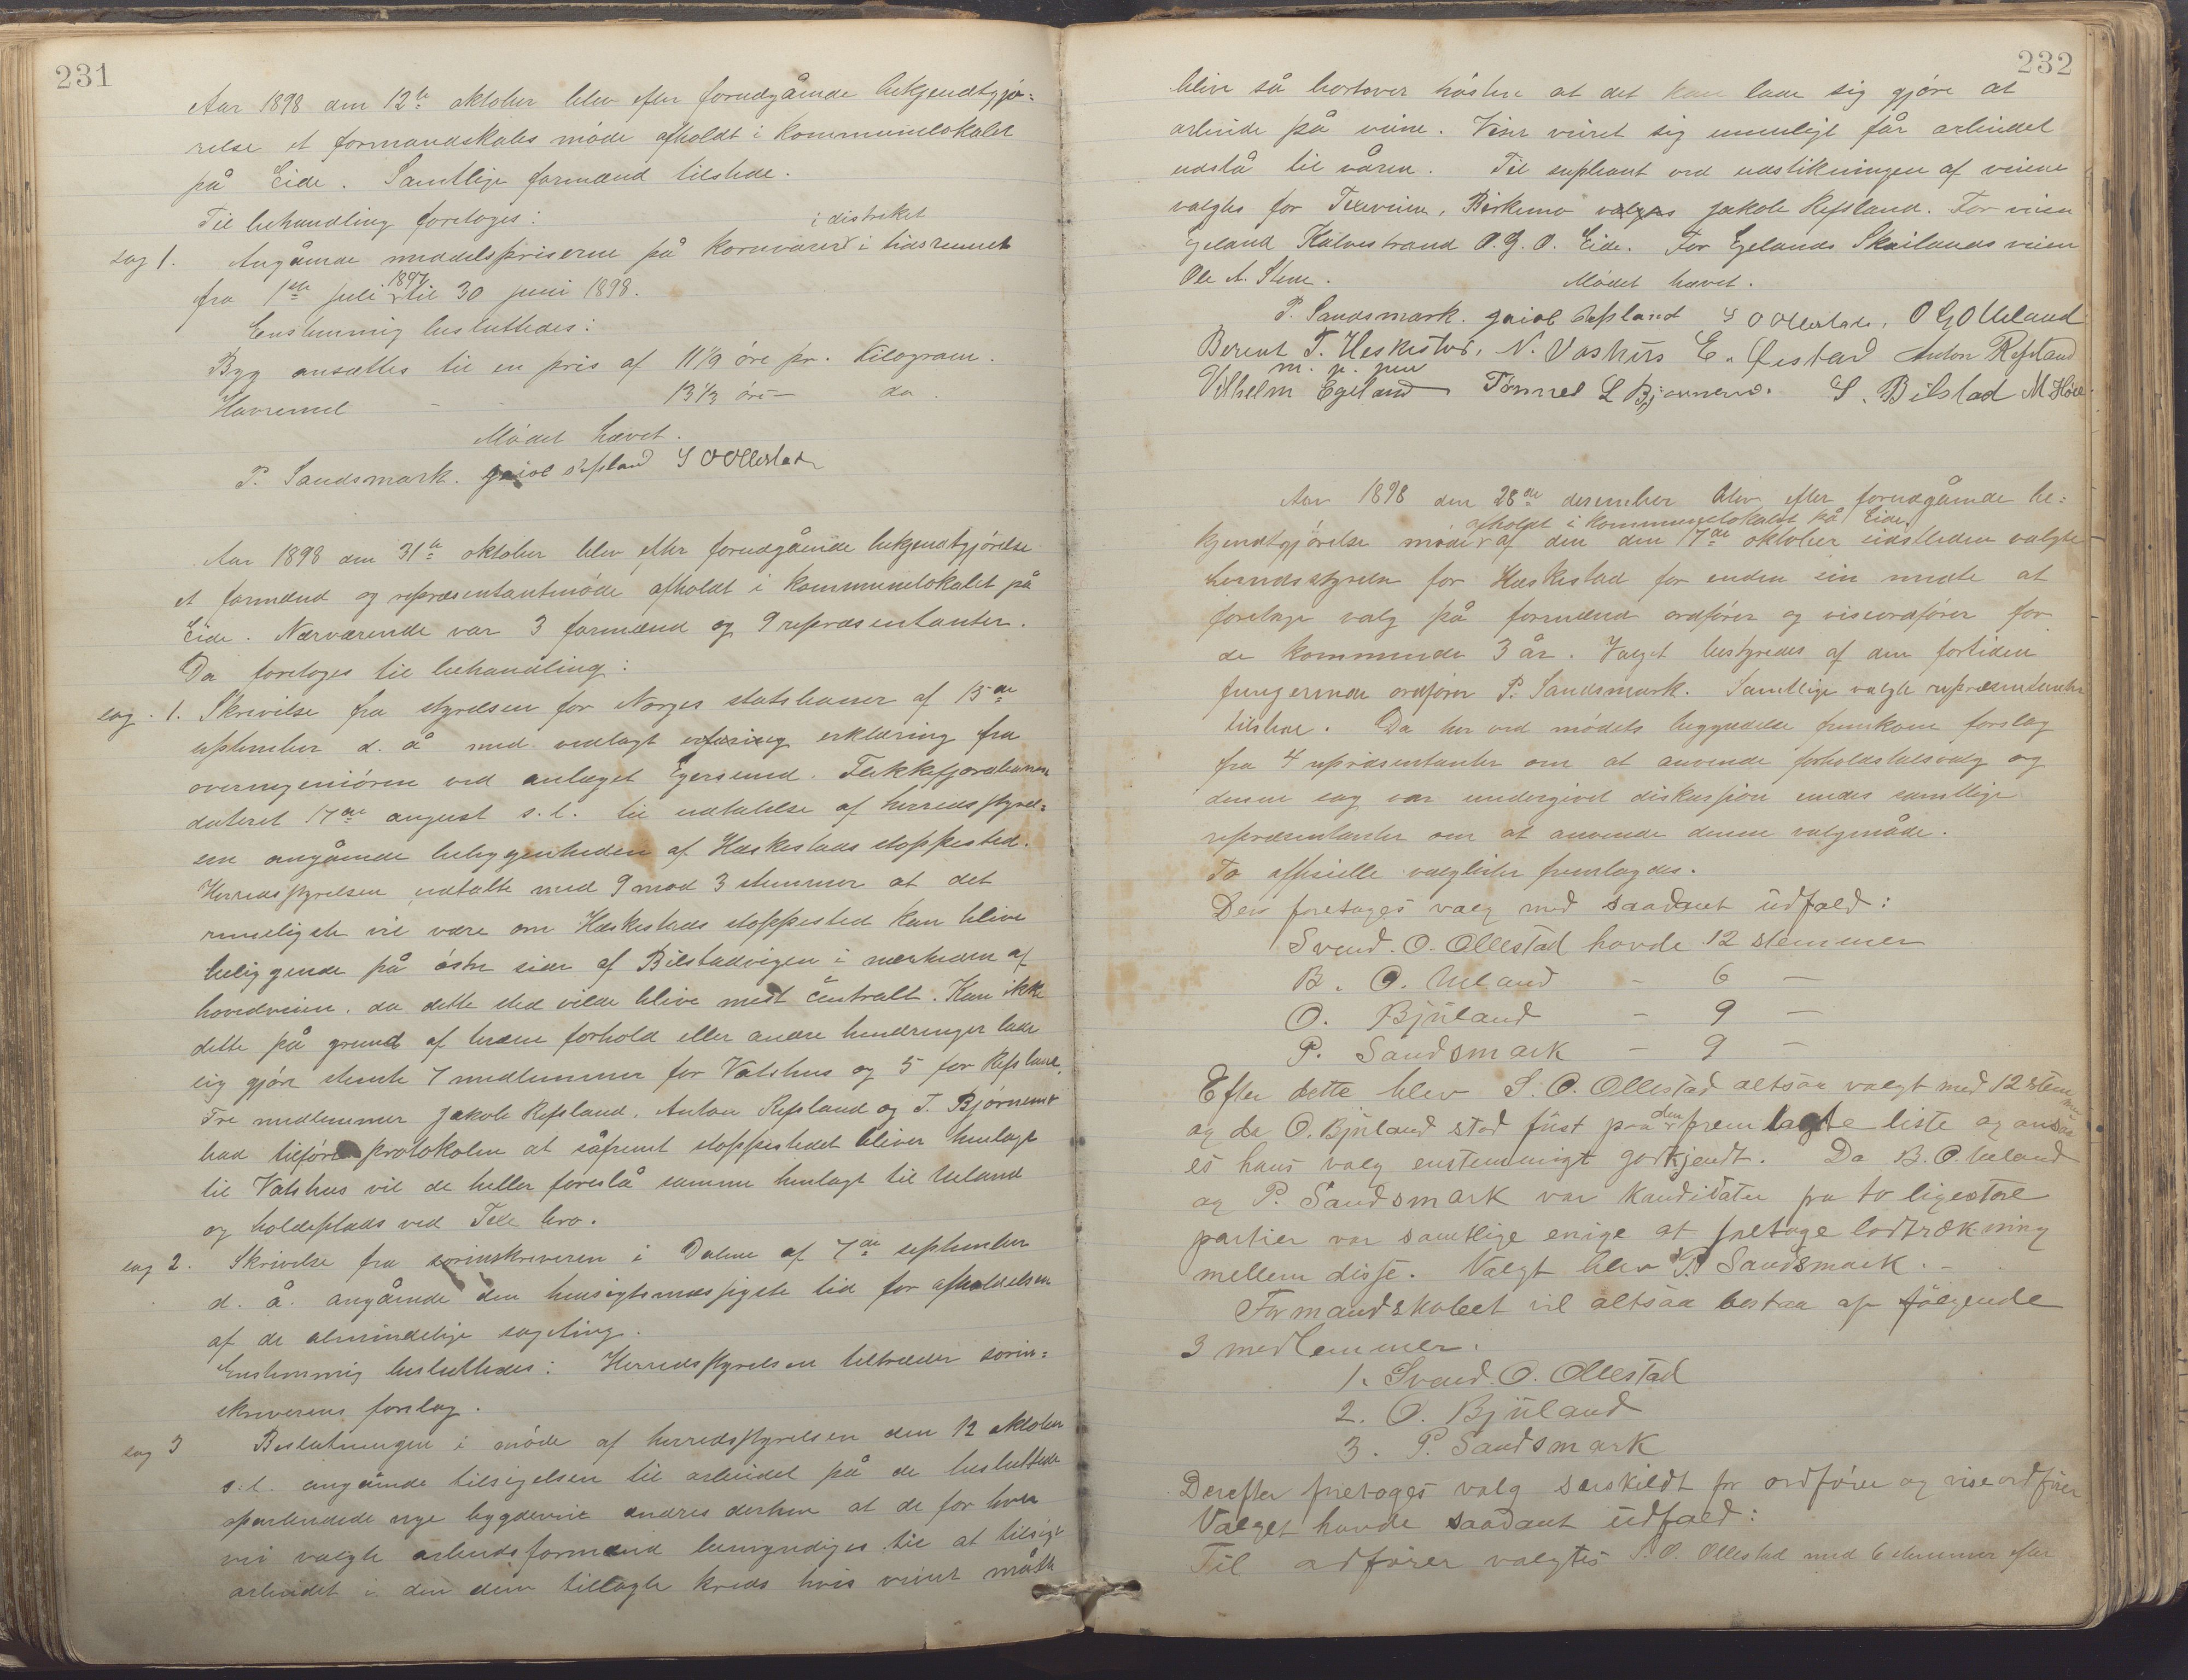 231
Aar 1898 den 12te oktober blev efter forudgående bekjendtgjø=
relse et formandskabs møde afholdt i kommunelokalet
på Eide. Samtlige formænd tilstede.
Til behandling foretoges:
i distriket
sag 1. Angående middelspriserne på kornvarer i tidsrummet
1897
fra 1ste juli til 30 juni 1898.
Enstemmig besluttedes:
Byg ansættes til en pris af 11 1/9 øre pr. Kilogram.
Havremel - - 13 1/3 øre - do.
Mødet hævet.
P. Sandsmark. Jakob Refsland S O Ollestad
Aar 1898 den 31te oktober blev efter forudgående bekjendtgjørelse
et formænd og repræsentantmøde afholdt i kommunelokalet på
Eide. Nærværende var 3 formænd og 9 repræsentanter.
Da foretoges til behandling:
sag. 1. Skrivelse fra styrelsen for Norges statsbaner af 15de
september d. å med vedlagt erklæring fra
overingeniøren ved anlæget Egersund. Flekkefjordbanen
dateret 17de august s. l. til udtalelse af herredsstyrel=
sen angående beliggenheden af Heskestads stoppested.
Herredsstyrelsen udtalte med 9 mod 3 stemmer at det
rimeligste vil være om Heskestads stoppested kan blive
beliggende på østre side af Bilstadvigen i nærheden af
hovedveien, da dette sted vilde blive mest centralt. Kan ikke
dette på grund af lræne forhold eller andre hindringer lade
sig gjøre stemte 7 medlemmer for Vatshus og 5 for Refsland.
Tre medlemmer Jakob Refsland, Anton Refsland og T. Bjørnemo
bad tilført protokolen at såfremt stoppestedet bliver henlagt
til Vatshus vil de heller foreslå samme henlagt til Ueland
og holdeplads ved Tele bro.
sag 2. Skrivelse fra sorinskriveren i Dalene af 7de september
d. å. angående den hensigtsmæssigste tid for afholdelsen
af de almindelige sagting.
Enstemmig besluttedes: Herredsstyrelsen tiltræder sorin=
skriverens forslag.
sag 3 Beslutningen i møde af herredsstyrelsen den 12 oktober
s. l. angående tilsigelsen til arbeidet på de besluttede
oparbeidede nye bygdeveie ændres derhen at de for hver
vei valgte arbeidsformænd bemyndiges til at tilsige
arbeidet i den dem tillagte kreds hvis veiret måtte
232
blive så bortover høsten at det kan lade sig gjøre at
arbeide på veiene. Viser veiret sig umuligt får arbeidet
udstå til våren. Til supleant ved udstikningen af veiene
valgtes for Televeien, Birkemo valgtes Jakob Refsland. For veien
Egeland Kalvestrand O. G. O. Eide. For Egelands Skailands veien
Ole A. Stene. Mødet hævet.
P. Sandsmark. Jakob Refsland S O Ollestad. O G O Ueland
Berent T. Heskestad. N. Vashus E. Qvestad Anton Refsland
m. p. pen
Vilhelm Egeland Tønnes L Bjørnemo. S. Bilstad M Høle.
Aar 1898 den 28de desember blev efter forudgående be=
afholdt i kommunelokalet på Eide.
kjendtgjørelse møde af den den 17de oktober sidstleden valgte
herredsstyrelse for Heskestad for enden ein multe at
foretage valg på formænd ordfører og viseordfører for
de kommende 3 år. Valget bestyredes af den fortiden
fungerende ordfører P. Sandsmark. Samtlige valgte repræsentanter
tilstede. Da her ved mødets begyndelse fremkom forslag
fra 4 repræsentanter om at anvende forholdstalsvalg og
denne sag var undergivet diskussjon enedes samtlige
repræsentanter om at anvende denne valgmåde.
To offisielle valglister fremlagdes.
Der foretoges valg med saadant udfald:
Svend. O. Ollestad havde 12 stemmer
B. O. Ueland - 6 -
O. Bjuland - 9 -
P. Sandsmark - 9 -
Efter dette blev S. O. Ollestad altsaa valgt med 12 stemmer
den
og da O. Bjuland stod først paa fremlagte liste og ansaa
es hans valg enstemmigt godkjendt. Da B. O. Ueland
og P. Sandsmark var kandidater fra to ligestore
partier var samtlige enige at foretage lodtrækning
mellem disse. Valgt blev P. Sandsmark. -
Formandskabet vil altsaa bestaa af følgende
3 medlemmer.
1. Svend. O. Ollestad
2. O. Bjuland
3. P. Sandsmark
Derefter foretoges valg særskildt for ordfører og viseordfører
Valget havde saadant udfald:
Til ordfører valgtes S. O. Ollestad med 6 stemmer efter